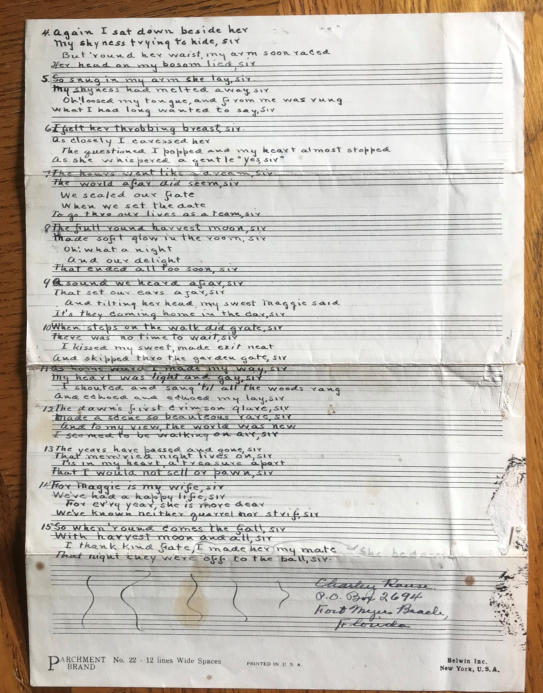 4. Again I sat down beside her
My shyness trying to hide, sir
But 'round her waist, my arm soon raced
Her head on my bosom lied, sir
5. So snug in my arm she lay, sir
My shyness had melted away, sir
Oh! loosed my tongue, and from me was rung
What I had long wanted to say, sir
6. I felt her throbbing breast, sir
As closely I caressed her
The questioned I popped and my heart almost stopped
As she whispered a gentle "yes, sir"
7. The hours went like a dream, sir
The world afar did seem, sir
We sealed our fate
When we set the date
To go thro our lives as a team, sir
8 The full round harvest moon, sir
Made soft glow in the room, sir
Oh! what a night
And our delight
That ended all too soon, sir
9 A sound we heard afar, sir
That set our ears ajar, sir
And tilting her head, my sweet Maggie said
It's they coming home in the car, sir
10 When steps on the walk did grate, sir
There was no time to wait, sir
I kissed my sweet, made exit neat
And skipped thro the garden gate, sir
11 As home ward I made my way, sir
My heart was light and gay, sir
I shouted and sang 'til all the woods rang
And echoed and echoed my lay, sir
12 The dawn's first crimson glare, sir
Made a scene so beauteous rare, sir
And to my view, the world was new
I seemed to be walking on air, sir
13 The years have passed and gone, sir
That mem'ried night lives on, sir
'Tis in my heart, a treasure apart
That I would not sell or pawn, sir
14 For Maggie is my wife, sir
We've had a happy life, sir
For ev'ry year, she is more dear
We've known neither quarrel nor strif, sir
15 So when 'round comes the fall, sir
With harvest moon and all, sir
I thank kind fate, I made her my mate
That night they were off to the ball, sir
Charley
P.O. Box 2694
Fort Myers Beach,
Florida
PARCHMENT BRAND No. 22 - 12 lines Wide Spaces
PRINTED IN U. S. A.
Belwin Inc.
New York, U. S. A.